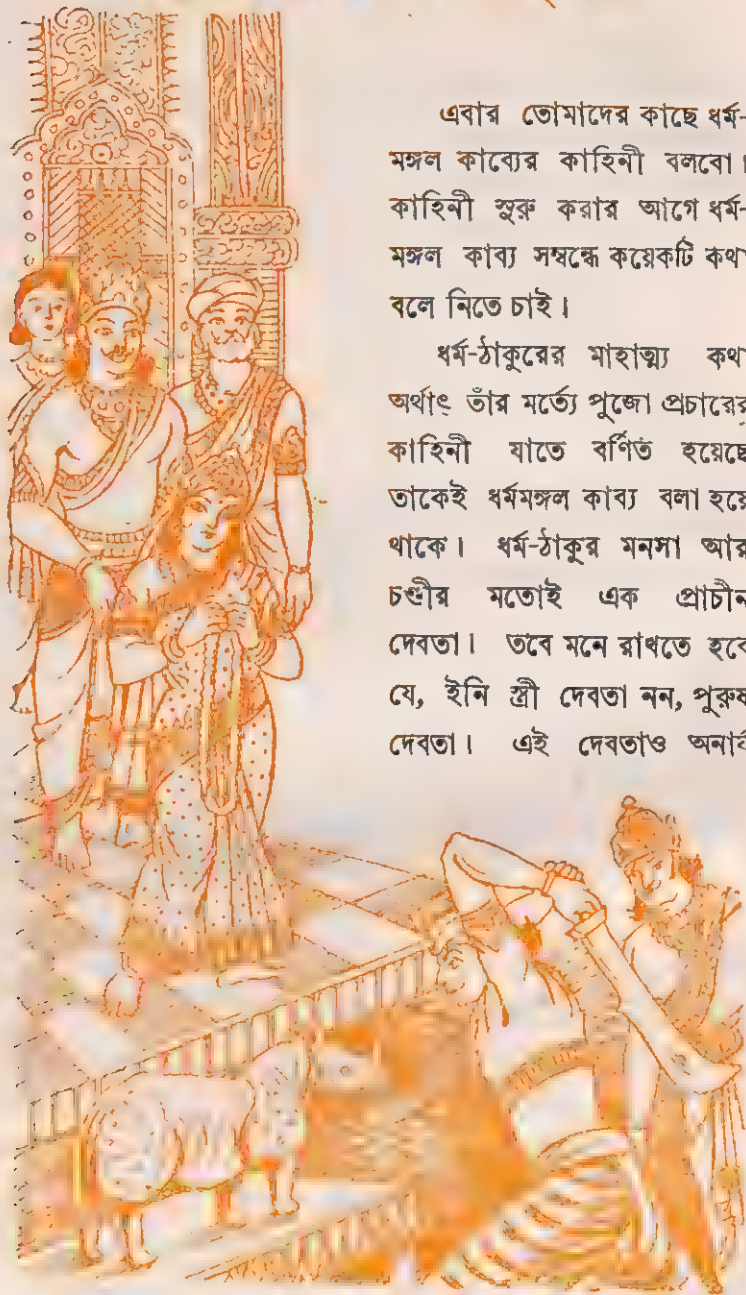 এবার তোমাদের কাছে ধর্ম-
মঙ্গল কাব্যের কাহিনী বলবো।
কাহিনী সুরু করার আগে ধর্ম-
মঙ্গল কাব্য সম্বন্ধে কয়েকটি কথা
বলে নিতে চাই।
ধর্ম-ঠাকুরের মাহাত্ম্য কথা
অর্থাৎ তাঁর মর্ত্যে পুজো প্রচারের
কাহিনী যাতে বর্ণিত হয়েছে
তাকেই ধর্মমঙ্গল কাব্য বলা হয়ে
থাকে। ধর্ম-ঠাকুর মনসা আর
চণ্ডীর মতোই এক প্রাচীন
দেবতা। তবে মনে রাখতে হবে
যে, ইনি স্ত্রী দেবতা নন, পুরুষ
দেবতা। এই দেবতাও অনার্য